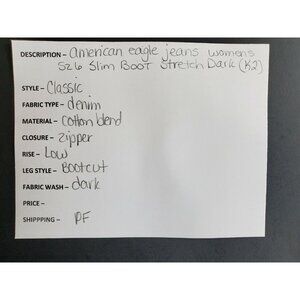 DESCRIPTION – american eagle jeans womens
526 Slim Boot Stretch Dark (K2)
STYLE – Classic
FABRIC TYPE – denim
MATERIAL – cotton blend
CLOSURE – zipper
RISE – Low
LEG STYLE – Bootcut
FABRIC WASH – dark
PRICE –
SHIPPPING – PF